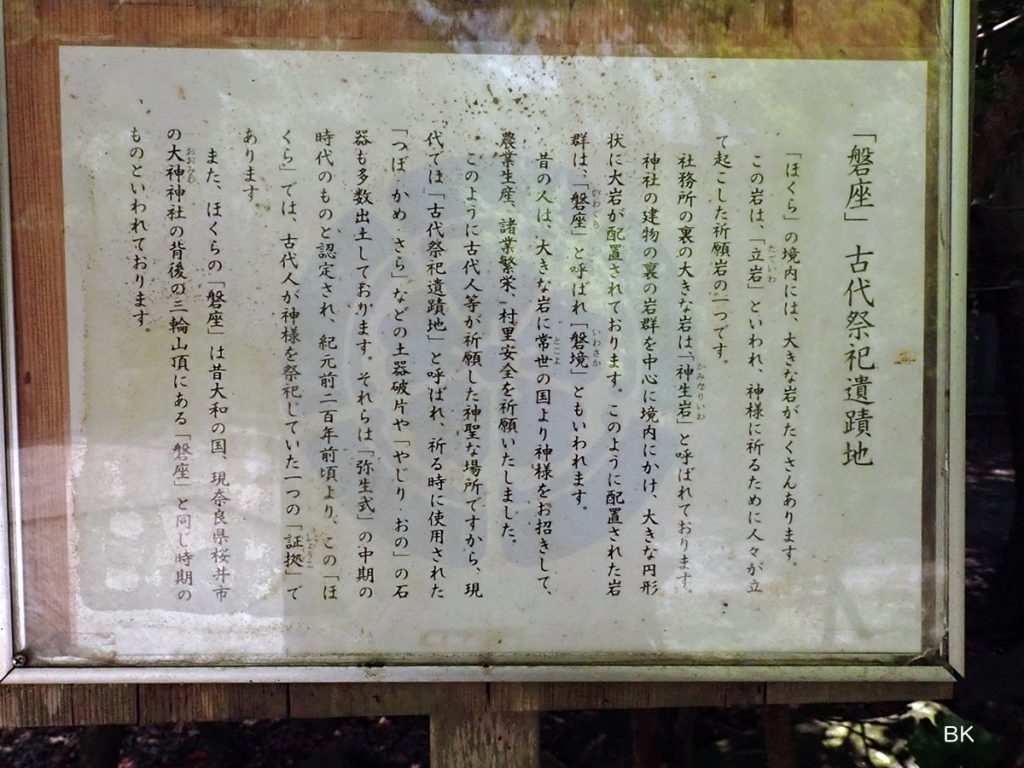 「磐座」古代祭祀遺蹟地
「ほくら」の境内には、大きな岩がたくさんあります。
この岩は、「立岩」といわれ、神様に祈るために人々が立
たていわ
て起こした祈願岩の一つです。
社務所の裏の大きな岩は「神生岩」と呼ばれております。
かみなりいわ
神社の建物の裏の岩群を中心に境内にかけ、大きな円形
状に大岩が配置されております。このように配置された岩
群は、「磐座」と呼ばれ「磐境」ともいわれます。
いわくら
いわさか
昔の人は、大きな岩に常世の国より神様をお招きして、
とこよ
農業生産、諸業繁栄、村里安全を祈願いたしました。
このように古代人等が祈願した神聖な場所ですから、現
代では「古代祭祀遺蹟地」と呼ばれ、祈る時に使用された
「つぼ かめ さら」などの土器破片や「やじり おの」の石
器も多数出土しております。それらは「弥生式」の中期の
時代のものと認定され、紀元前二百年前頃より、この「ほ
くら」では、古代人が神様を祭祀していた一つの「証拠」で
しょうこ
あります。
また、ほくらの「磐座」は昔大和の国、現奈良県桜井市
の大神神社の背後の三輪山頂にある「磐座」と同じ時期の
おおみわ
ものといわれております。
BK